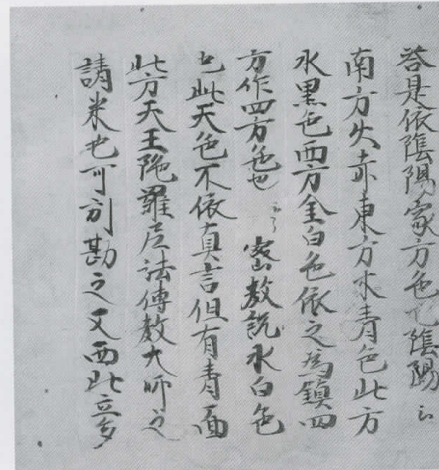 答是依陰陽家方色也陰陽云
南方火赤東方木青色北方
水黒色西方金白色依之為鎮四
方作四方色也云々 密教説水白色
也此天色不依真言但有青面
北方天王陁羅尼法傳教大師之
請来也可引勘之又西北